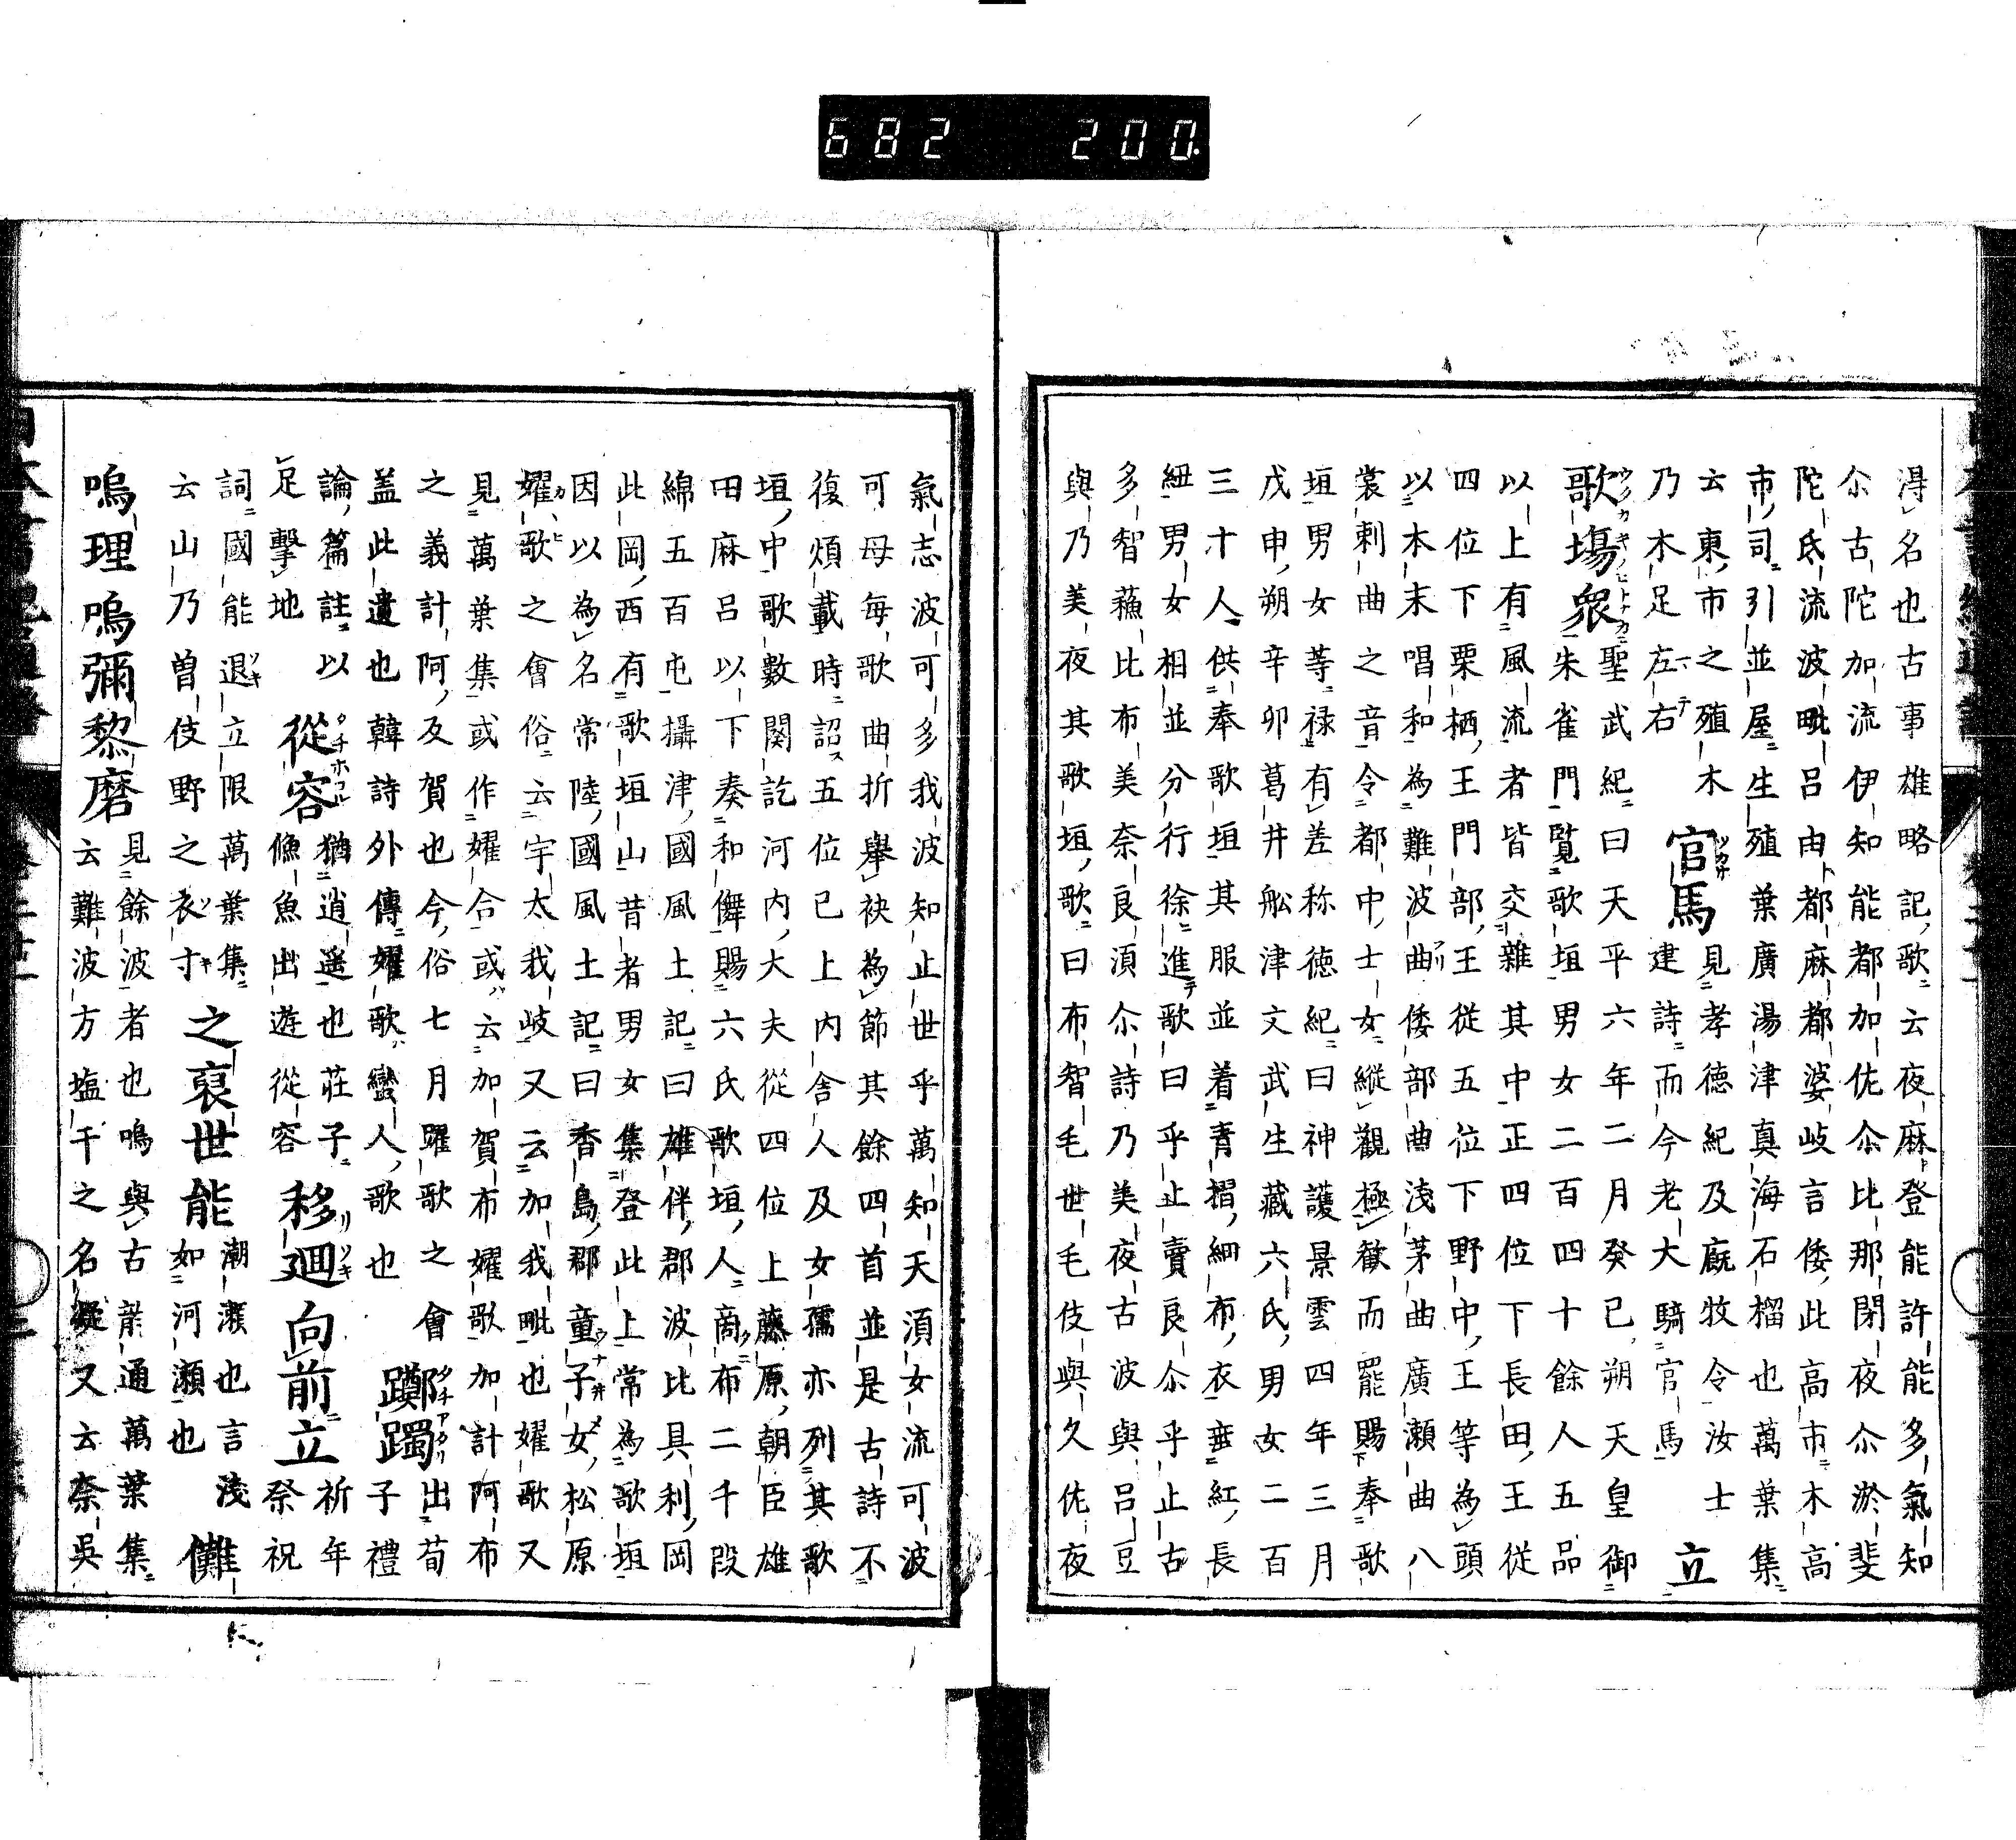 682 200
淂名也古事雄略記歌云夜麻登能許能多氣知
尒古陀加流伊知能都加佐尒比那閇夜尒淤斐
陀氐流波毗呂由都麻都婆岐言倭此高市木高
市司引並屋生殖葉廣湯津真海石榴也萬葉集
云東市之殖木 官馬 見孝徳紀及廐牧令汝士
乃木足左右 建詩而今老大騎官馬 立
歌塲衆 聖武紀曰天平六年二月癸巳朔天皇御
朱雀門覧歌垣男女二百四十餘人五品
以上有風流者皆交雜其中正四位下長田王從
四位下栗栖王門部王從五位下野中王等為頭
以本末唱和為難波曲倭部曲淺茅曲廣瀬曲八
裳刺曲之音令都中士女縱觀極歓而罷賜奉歌
垣男女等禄有差称徳紀曰神護景雲四年三月
戊申朔辛卯葛井舩津文武生藏六氏男女二百
三十人供奉歌垣其服並着青摺細布衣垂紅長
紐男女相並分行徐進歌曰乎止賣良尒乎止古
多智蘓比布美奈良湏尒詩乃美夜古波與呂豆
與乃美夜其歌垣歌曰布智毛世毛伎與久佐夜
氣志波可多我波知止世乎萬知天湏女流可波
可母每歌曲折舉袂為節其餘四首並是古詩不
復煩載時詔五位已上内舎人及女孺亦列其歌
垣中歌數闋訖河内大夫從四位上藤原朝臣雄
田麻呂以下奏和儛賜六氏歌垣人商布二千段
綿五百屯攝津國風土記曰雄伴郡波比具利岡
此岡西有歌垣山昔者男女集登此上常為歌垣
因以為名常陸國風土記曰香島郡童子女松原
嬥歌之會俗云宇太我岐又云加我毗也嬥歌又
見萬葉集或作嬥合或云加賀布嬥歌加計阿布
之義計阿反賀也今俗七月踊歌之會 躑躅 出荀
盖此遺也韓詩外傳嬥歌蠻人歌也 子禮
論篇註以 從容 猶逍遥也莊子 移𢌞向前立 祈年
足擊地 鯈魚出遊從容 祭祝
詞國能退立限萬葉集 之裒世能 潮瀬也言淺 儺
云山乃曽伎野之衣寸 如河瀬也
嗚理嗚彌黎磨 見餘波者也鳴與古音通萬葉集
云難波方塩干之名凝又云奈呉